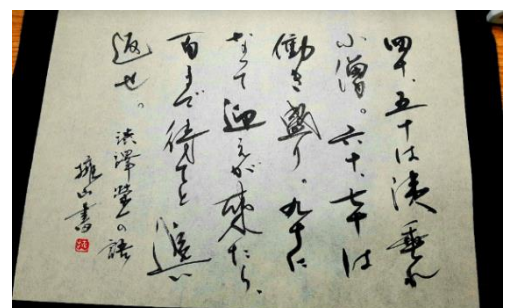 四十、五十は洟垂れ
小僧。六十、七十は
働き盛り。九十に
なって迎えが来たら、
百まで待てと追い
返せ。
渋澤榮一の語
龍山書